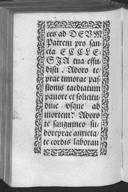 ces ad DEVM
Patrem pro san-
cta ECCLE-
SIA tua effu-
disti. Adoro te
præ timoras pas-
sionis tædiatum
pauore et solicitu
dine vsque ad
mortem: Adoro
te sanguineo su-
dore præ anxieta-
te cordis laboran